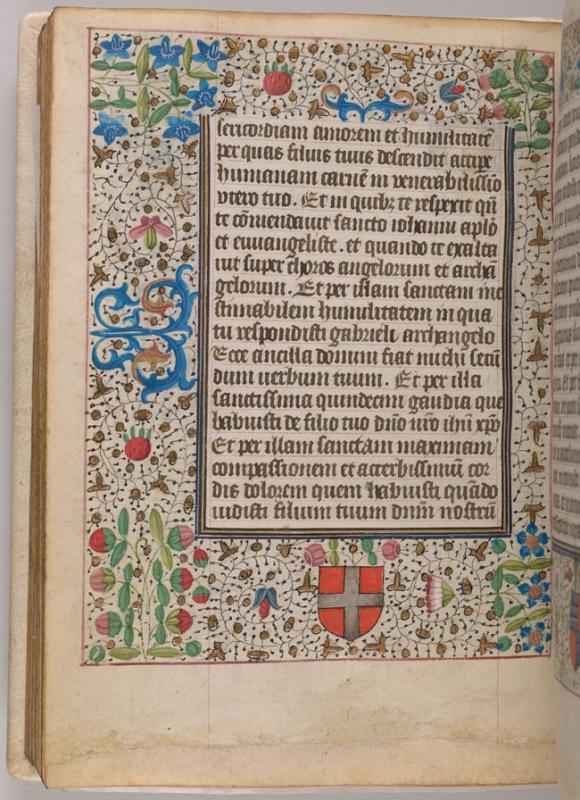 sericordiam amorem et humilitatē
per quas filius tuus descendit accipe
humanam carnē in venerabilissīo
vtero tuo. Et in quibꝫ te respexit qn̄
te cōmendauit sancto iohanni aplō
et euuangeliste. et quando te exalta
uit super choros angelorum et archā
gelorum. Et per istam sanctam ine
stimabilem humilitatem in qua
tu respondisti gabrieli archangelo
Ecce ancilla domini fiat michi secū
dum uerbum tuum. Et per illa
sanctissima quindecim gaudia que
habuisti de filio tuo dn̄o nr̄o ihū xp̄o
Et per illam sanctam maximam
compassionem et acerbissimū cor
dis dolorem quem habuisti quādo
uidisti filium tuum dn̄m nostrū